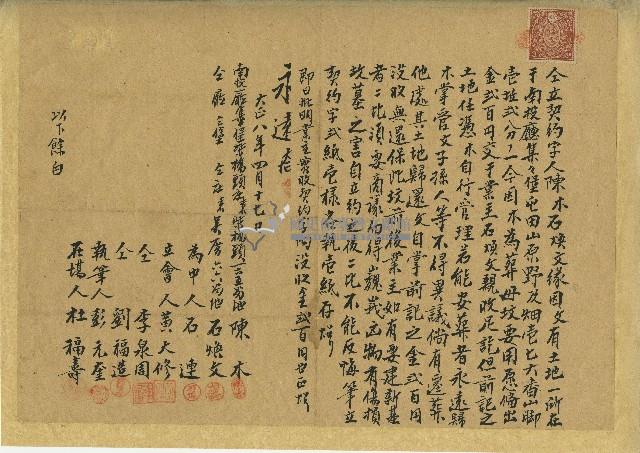 仝立契約字人陳木石煥文緣因文有土地一所在
于南投廳集々堡屯田山原野及畑壱七六番山脚
壱坵弍分
一仝因木為葬母坟要用愿備出
金弍百円交于業主石煥文親收足訖但前記之
土地任憑木自行管理若能安葬者永遠歸
木掌管文子孫人等不得異議倘有遷葬
他處其土地歸還文自掌前記之金弍百円
沒收無還保此坟
後業主如有要建新基
者二比須要商議不得
物有傷損
坟墓之害自立約之後二比不能反悔筆立
契約字弍紙壱樣各執壱紙存炤
即日批明業主實收契約字內
金弍百円也正炤
永遠存
大正八年四月十七日
南投廳集々堡
陳木
仝廳仝堡
石煥文
為中人石連
立會人黃大修
仝李泉周
仝劉福造
執筆人彭元奎
在場人杜福壽
以下餘白